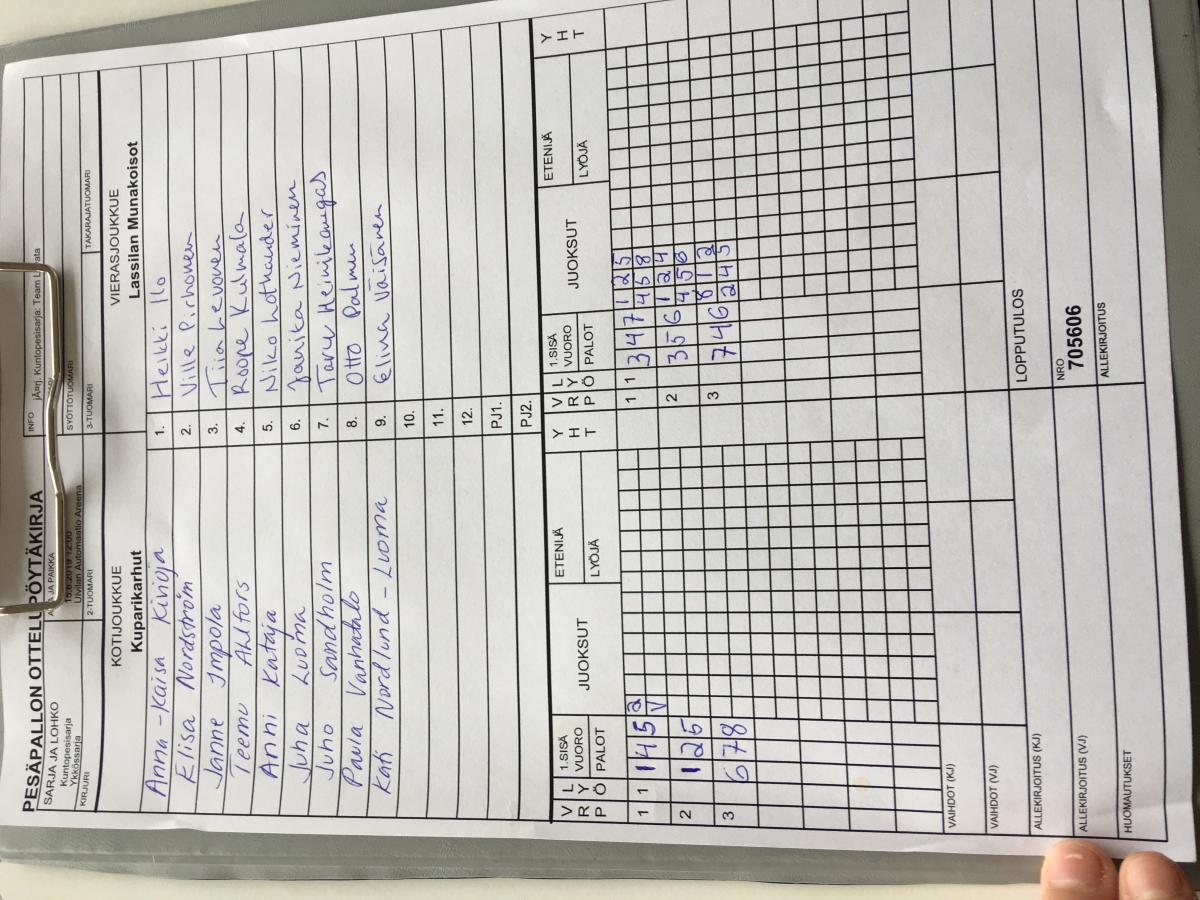 PESÄPALLON OTTELUPÖYTÄKIRJA
SARJA JA LOHKO
Kuntopesisarja
Ykkössarja
AIKA JA PAIKKA
15.6.2019 12:00
Ulvilan Automaatio Areena
INFO
Kuntopesisarja: Team
KIRJURI
2-TUOMARI
SYÖTTÖTUOMARI
3-TUOMARI
TAKARAJATUOMARI
KOTIJOUKKUE
Kuparikarhut
VIERASJOUKKUE
Lassilan Munakoisot
Anna-Kaisa Kivioja 1. Heikki Ilo
Elisa Nordström 2. Ville Pirhonen
Janne Impola 3. Tiia Levonen
Teemu Ahlfors 4. Roope Kulmala
Anni Kataja 5. Niko Lothander
Juha Luoma 6. Jannika Nieminen
Juho Sandholm 7. Taru Heinikangas
Paula Vanhatalo 8. Otto Palmu
Kati Nordlund-Luoma 9. Elina Väisänen
10.
11.
12.
PJ1.
PJ2.
V R P L Y Ö 1.SISÄ VUORO PALOT JUOKSUT ETENIJÄ LYÖJÄ Y H T V R P L Y Ö 1.SISÄ VUORO PALOT JUOKSUT ETENIJÄ LYÖJÄ Y H T
1 1 1 4 5 2 1 1 3 4 7 1 2 5
V 4 5 8
2 1 2 5 2 3 5 6 1 2 4
4 5 6
3 6 7 8 3 7 4 6 8 1 2
2 4 5
VAIHDOT (KJ)
VAIHDOT (VJ)
LOPPUTULOS
ALLEKIRJOITUS (KJ)
ALLEKIRJOITUS (VJ)
NRO
705606
HUOMAUTUKSET
ALLEKIRJOITUS